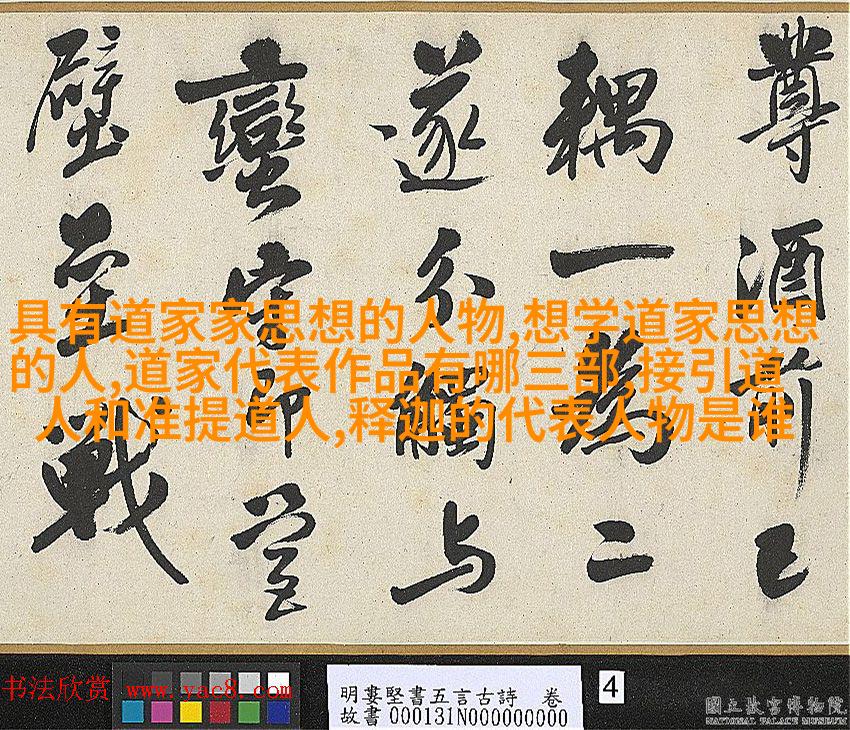 尊酒前已
耦一為二
遂分觸与
蠻
壁壘戰
具有道家家思想的人物,想学道家思想
的人,道家代表作品有哪三部,接引道
人和准提道人,释迦的代表人物是谁
书法欣赏 www.yac8.com
明婁堅書五言古詩 卷
故書000131N000000000
4
國立故宮博物院
NATIONAL PALACE MUSEUM